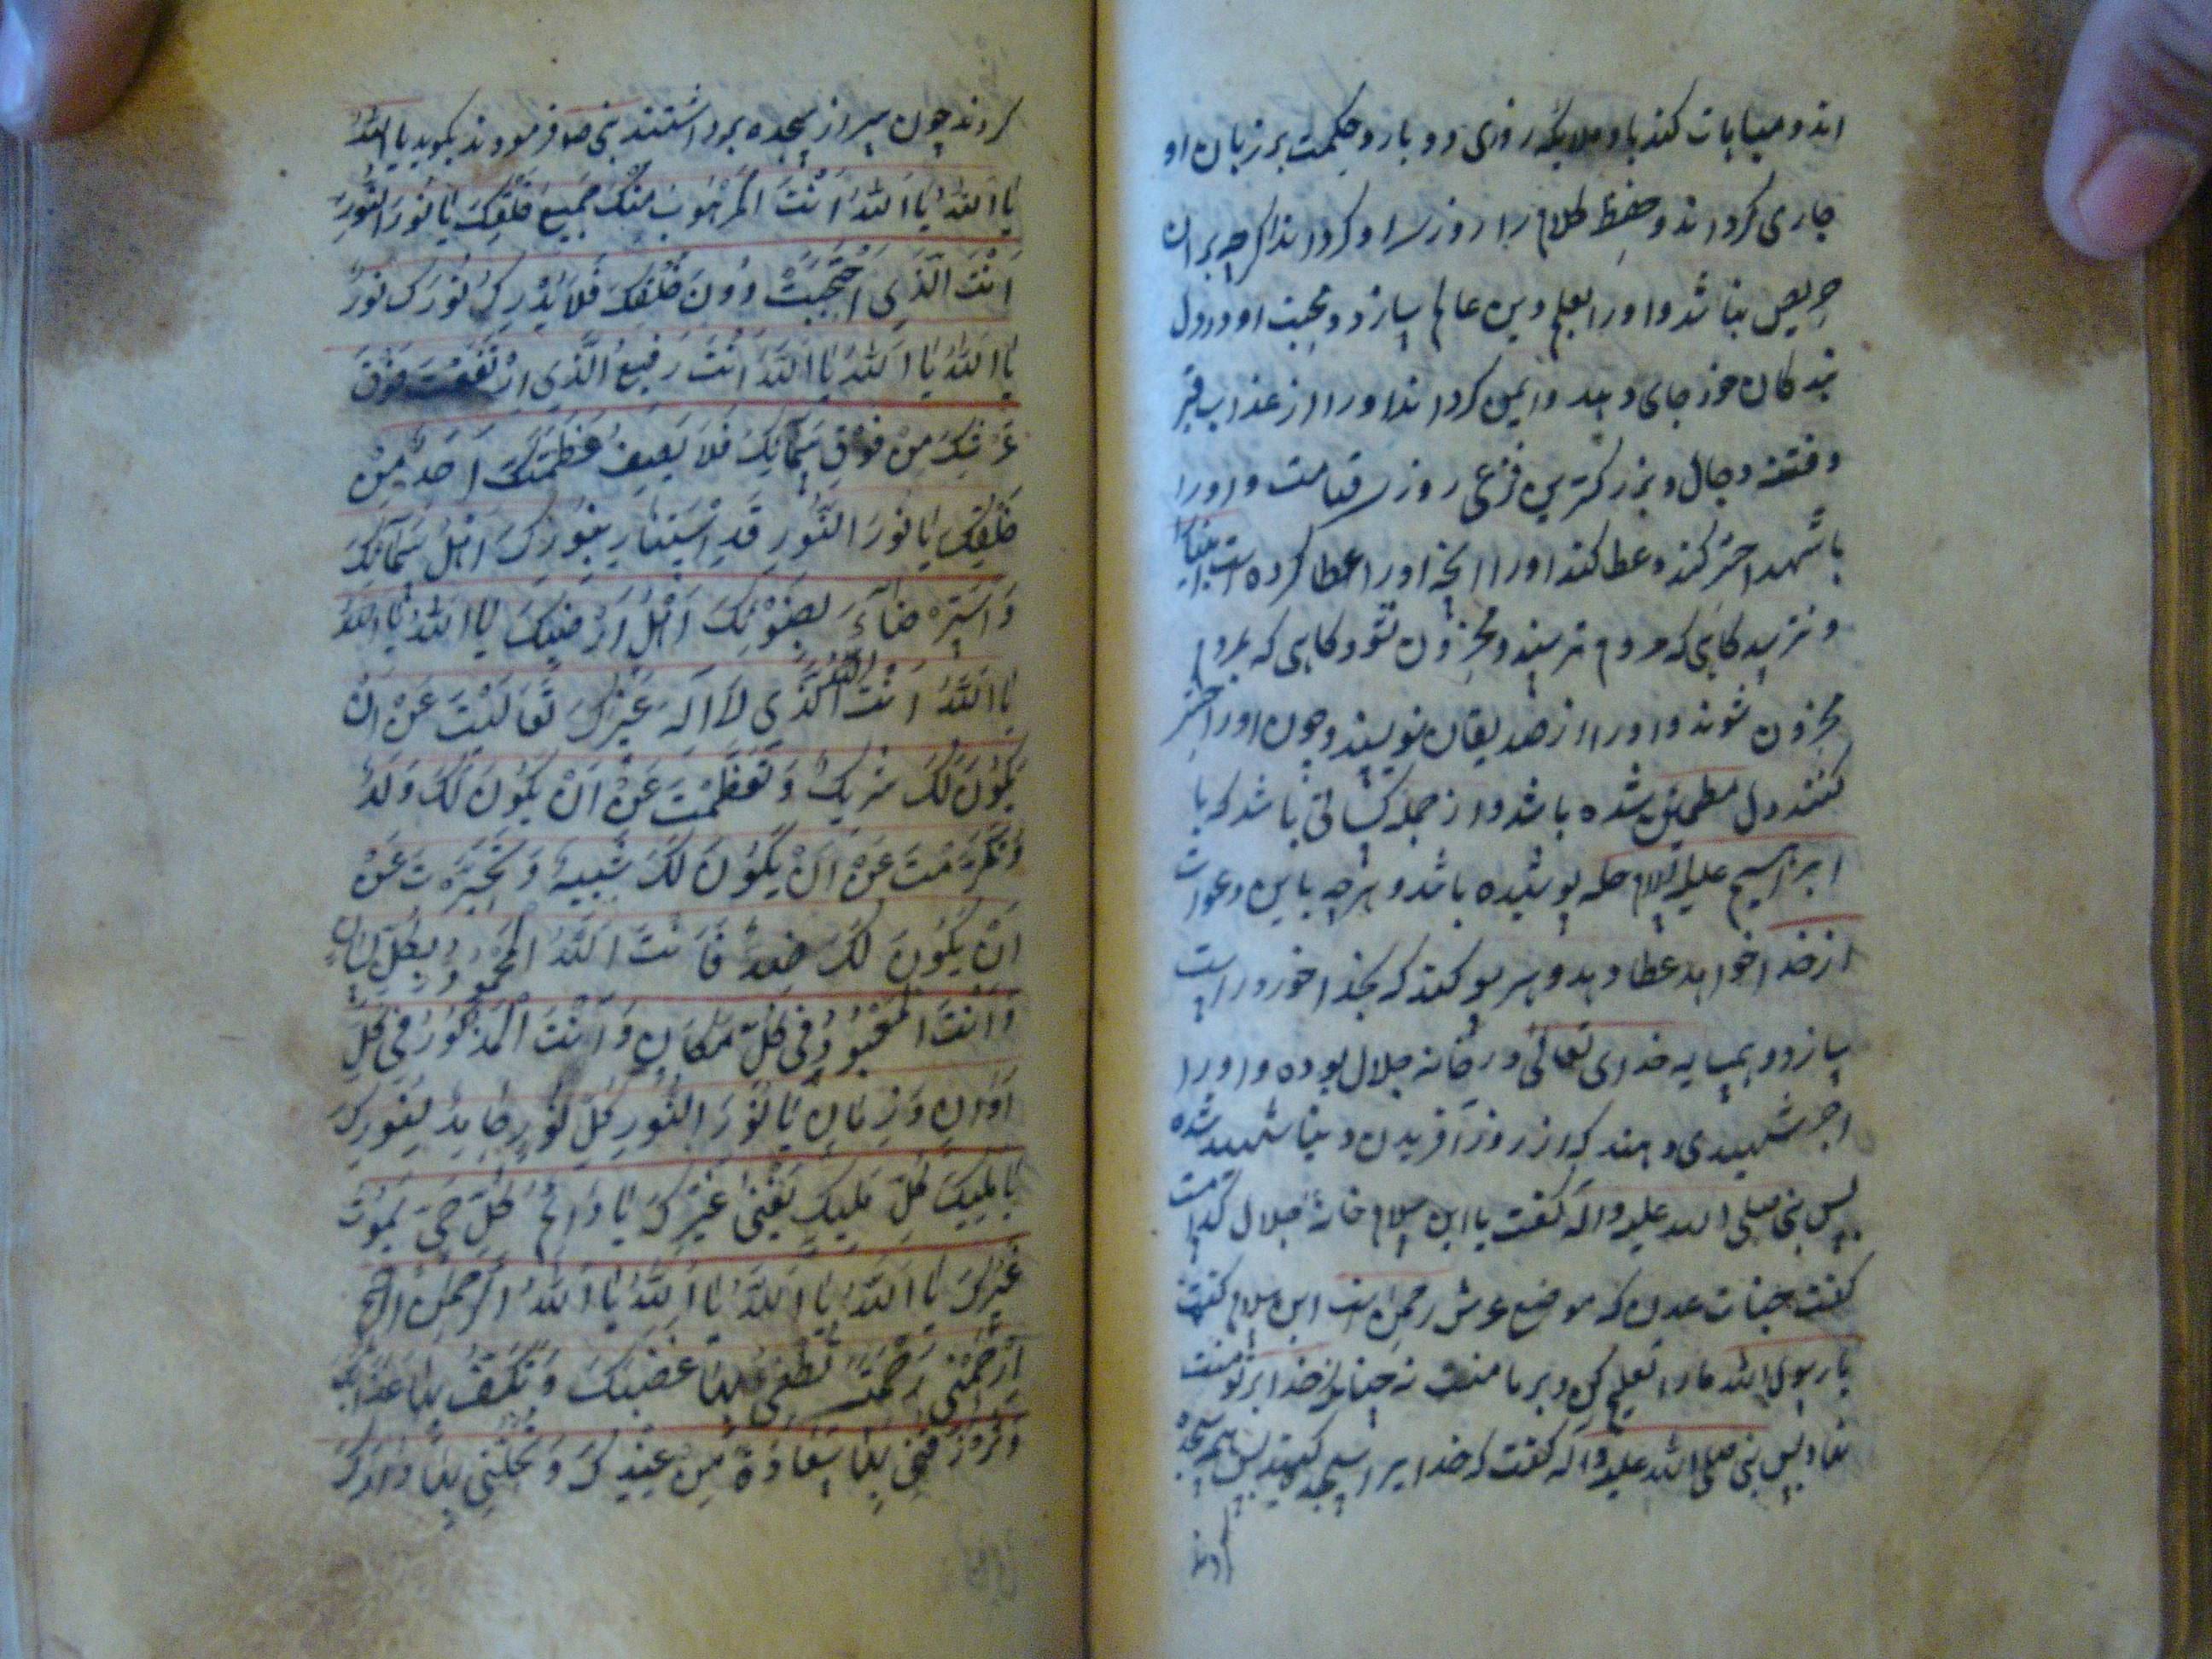 اند و مباهات کند باو ملایکه روزی دو بار و حکمت بر زبان او
جاری کرداند و حفظ کلام را روز او کرداند اکرچه بران
حریص نباشد و او را بعلم دین عالم سازد و محبت او در دل
بندکان خود جای دهد و ایمن کرداند او را از عذاب قبر
و فتنه دجال و بزرکترین فزعی روز قیامت و او را
با شهدا حشر کند و عطا کند او را آنچه او را عطا کرده است
و نترسد کاهی که مردم ترسند و محزون نشود کاهی که مردم
محزون شوند و او را از صدیقان نویسند و چون او را حشر
کنند دل مطمئن شده باشد و از جمله کسانی باشد که با
ابراهیم علیه السلام حله پوشیده باشد و هرچه باین دعوات
از خدا خواهد عطا دهد و هر سو کند که بخدا خورد راست
سازد و همسایه خدای تعالی در خانه جلال بوده و او را
اجر شهیدی دهند که از روز آفریدن دنیا شهید شده
پس نبی صلی الله علیه واله کفت یا ابن سلام خانهٔ جلال کدامست
کفت جنات عدن که موضع عرش رحمن است ابن سلام کفت
یا رسول الله مارا تعلیم کن و بر ما منت نه چنانکه خدا بر تو منت
نهاد پس نبی صلی الله علیه واله کفت که خدا یرا سجده کنید پس همه سجده
کردند
کردند چون سر از سجده برداشتند نبی ص فرمودند بکویید یا الله
یَا اَللهُ یَا اَللهُ اَنْتَ الْمَرْهُوبُ مِنْکَ جَمِیعُ خَلْقِکَ یَا نُورَ النُّورِ
اَنْتَ الَّذِی احْتَجَبْتَ دُونَ خَلْقِکَ فَلَا یُدْرِکُ نُورَکَ نُورٌ
یَا اَللهُ یَا اَللهُ یَا اَللهُ اَنْتَ رَفِیعُ الَّذِی ارْتَفَعْتَ فَوْقَ
عَرْشِکَ مِنْ فَوْقِ سَمَائِکَ فَلَا یَصِفُ عَظَمَتَکَ اَحَدٌ مِنْ
خَلْقِکَ یَا نُورَ النُّورِ قَدِ اسْتَنَارَ بِنُورِکَ اَهْلُ سَمَآئِکَ
وَاسْتَضَآءَ بِضَوْئِکَ اَهْلُ اَرْضِکَ یَا اَللهُ یَا اَللهُ
یَا اَللهُ اَنْتَ اللهُ الَّذِی لَا اِلَهَ غَیْرُکَ تَعَالَیْتَ عَنْ اَنْ
یَکُونَ لَکَ شَرِیکٌ وَتَعَظَّمْتَ عَنْ اَنْ یَکُونَ لَکَ وَلَدٌ
وَتَکَرَّمْتَ عَنْ اَنْ یَکُونَ لَکَ شَبِیهٌ وَتَجَبَّرْتَ عَنْ
اَنْ یَکُونَ لَکَ ضِدٌّ فَاَنْتَ اللهُ الْمَحْمُودُ بِکُلِّ لِسَانٍ
وَاَنْتَ الْمَعْبُودُ فِی کُلِّ مَکَانٍ وَاَنْتَ الْمَذْکُورُ فِی کُلِّ
اَوَانٍ وَزَمَانٍ یَا نُورَ النُّورِ کُلُّ نُورٍ خَامِدٌ لِنُورِکَ
یَا مَلِیکَ کُلِّ مَلِیکٍ یَفْنَی غَیْرُکَ یَا دَائِمُ کُلُّ حَیٍّ یَمُوتُ
غَیْرُکَ یَا اَللهُ یَا اَللهُ یَا اَللهُ یَا اَللهُ الرَّحْمٰنُ الرَّحِیمُ
اِرْحَمْنِی رَحْمَةً تُطْفِیُٔ بِهَا غَضَبَکَ وَتَکُفُّ بِهَا عَذَابَکَ
وَتَرْزُقُنِی بِهَا سَعَادَةً مِنْ عِنْدِکَ وَتُحِلُّنِی بِهَا دَارَکَ